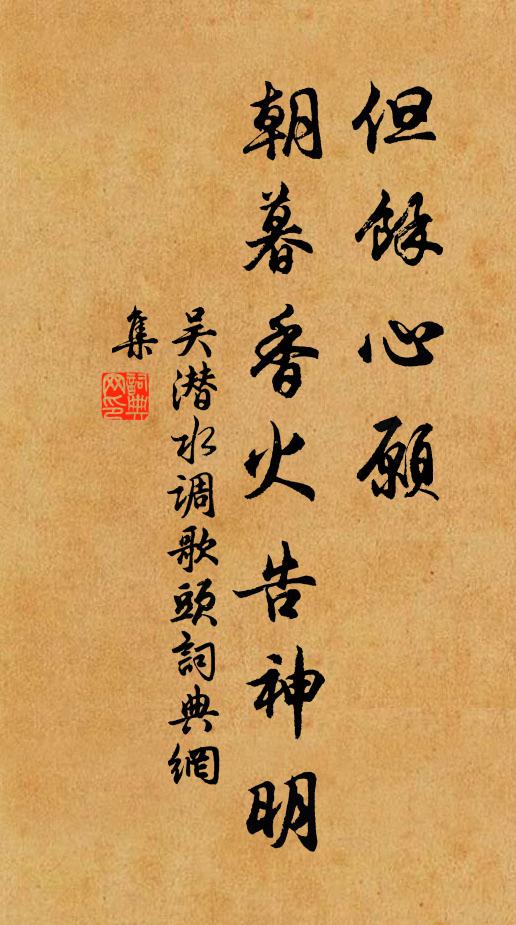 但餘心願
朝暮香火告神明
吴潜水调歌頭詞典網
集
詞典網印